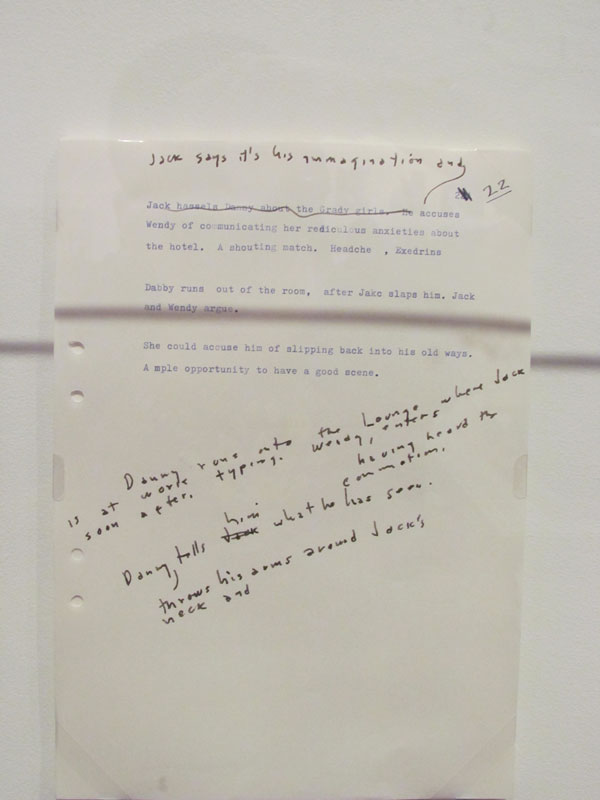 Jack says it's his immagination and
22
Jack hassels Danny about the Grady girls. He accuses
Wendy of communicating her rediculous anxieties about
the hotel. A shouting match. Headche , Exedrins
Dabby runs out of the room, after Jakc slaps him. Jack
and Wendy argue.
She could acouse him of slipping back into his old ways.
A mple opportunity to have a good scene.
Danny runs into the Lounge where Jack
is at work typing. Wendy, enters
soon after. having heard the
commotion.
Danny tells Jack him what he has seen.
throws his arms around Jack's
neck and